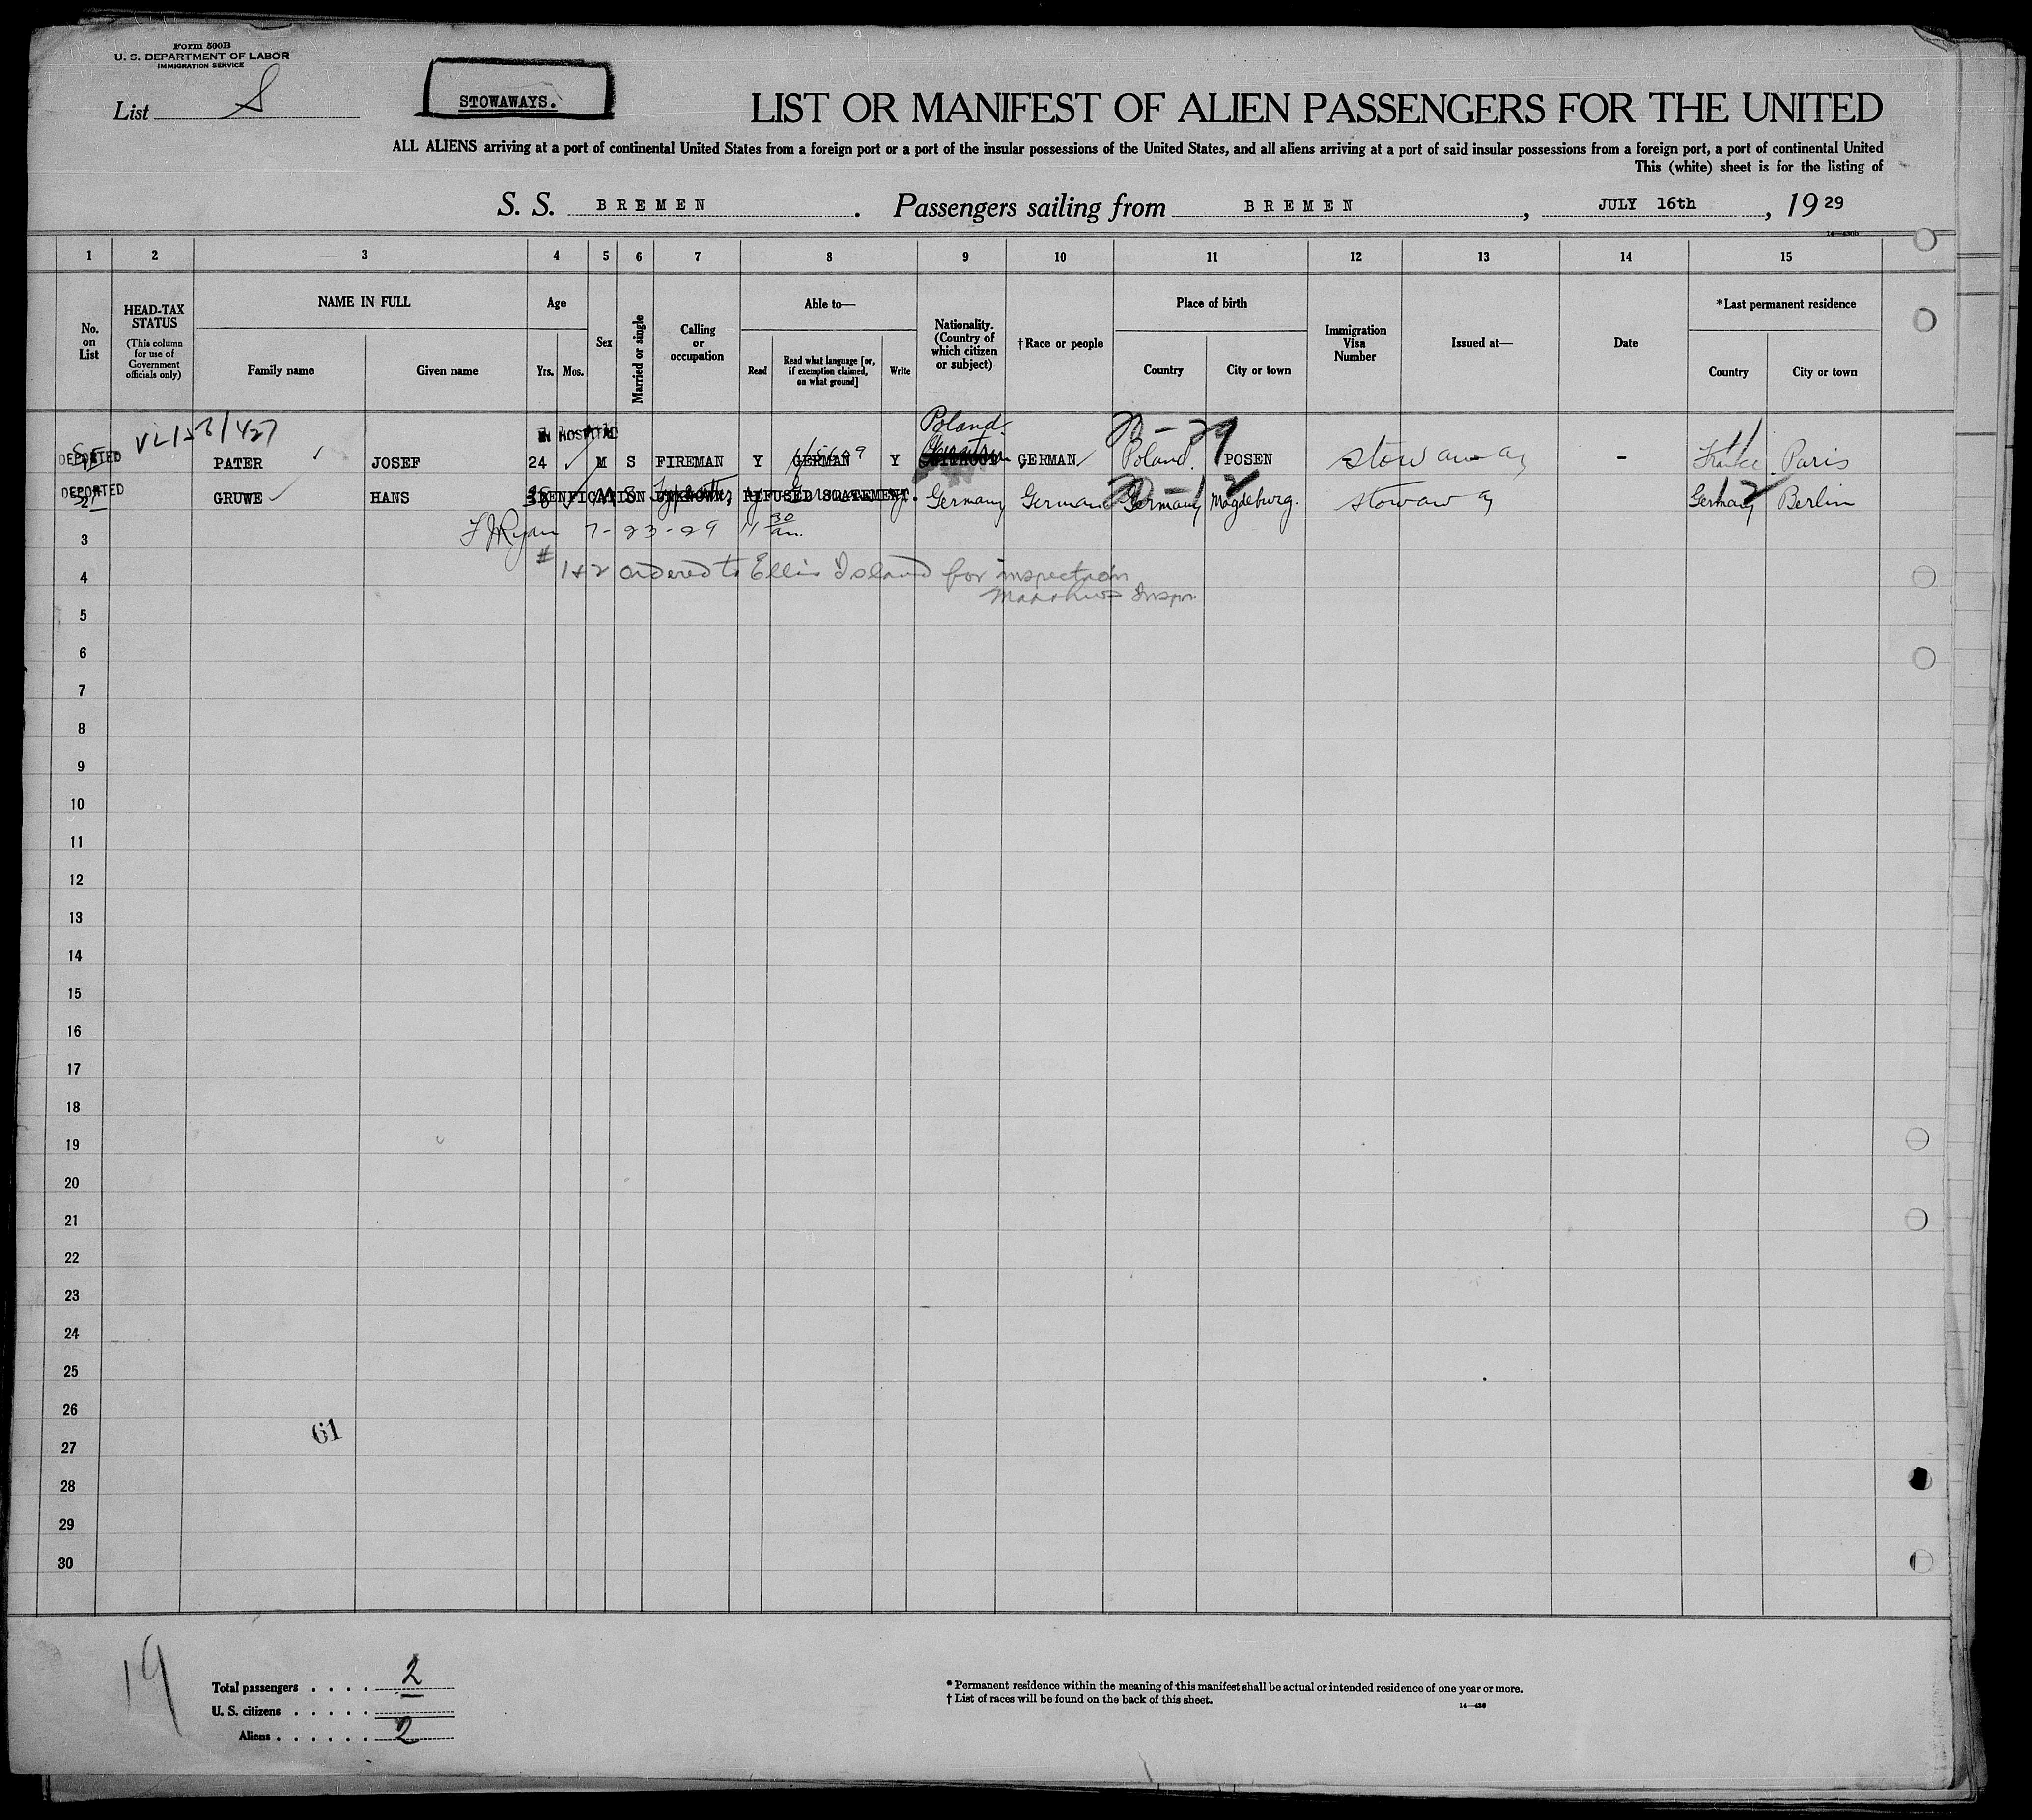 Form 500B
U. S. DEPARTMENT OF LABOR
IMMIGRATION SERVICE
List S
STOWAWAYS.
LIST OR MANIFEST OF ALIEN PASSENGERS FOR THE UNITED
ALL ALIENS arriving at a port of continental United States from a foreign port or a port of the insular possessions of the United States, and all aliens arriving at a port of said insular possessions from a foreign port, a port of continental United
This (white) sheet is for the listing of
S. S. BREMEN. Passengers sailing from BREMEN, JULY 16th, 1929
1 2 3 4 5 6 7 8 9 10 11 12 13 14 15
No. on List
HEAD-TAX STATUS
(This column for use of Government officials only)
NAME IN FULL
Family name
Given name
Age
Yrs.
Mos.
Sex
Married or single
Calling or occupation
Able to—
Read
Read what language [or, if exemption claimed, on what ground]
Write
Nationality. (Country of which citizen or subject)
†Race or people
Place of birth
Country
City or town
Immigration Visa Number
Issued at—
Date
*Last permanent residence
Country
City or town
IN HOSPITAL
Poland
DEPORTED PATER JOSEF 24 M S FIREMAN Y GERMAN Y GERMAN Poland. POSEN stowaway - France Paris
DEPORTED GRUWE HANS UNKNOWN, REFUSED STATEMENT. Germany German Germany Magdeburg. stowaway Germany Berlin
3 F J Ryan 7-23-29 11 30 am.
4 # 1+2 ordered to Ellis Island for inspection
Inspr.
5
6
7
8
9
10
11
12
13
14
15
16
17
18
19
20
21
22
23
24
25
26
61
27
28
29
30
19
Total passengers . . . . 2
U. S. citizens . . . . .
Aliens . . . . . . 2
* Permanent residence within the meaning of this manifest shall be actual or intended residence of one year or more.
† List of races will be found on the back of this sheet.